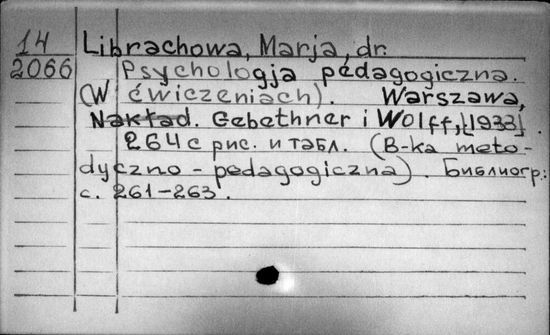 14 Librachowa, Marja, dr
2066 Psychologja pedagogiczna.
(W ćwiczeniach). Warszawa,
Nakład. Gebethner i Wolff, [1933].
264 с рис. и табл. (B-ka meto-
dyczno-pedagogiczna). Библиогр.:
с. 261-263.